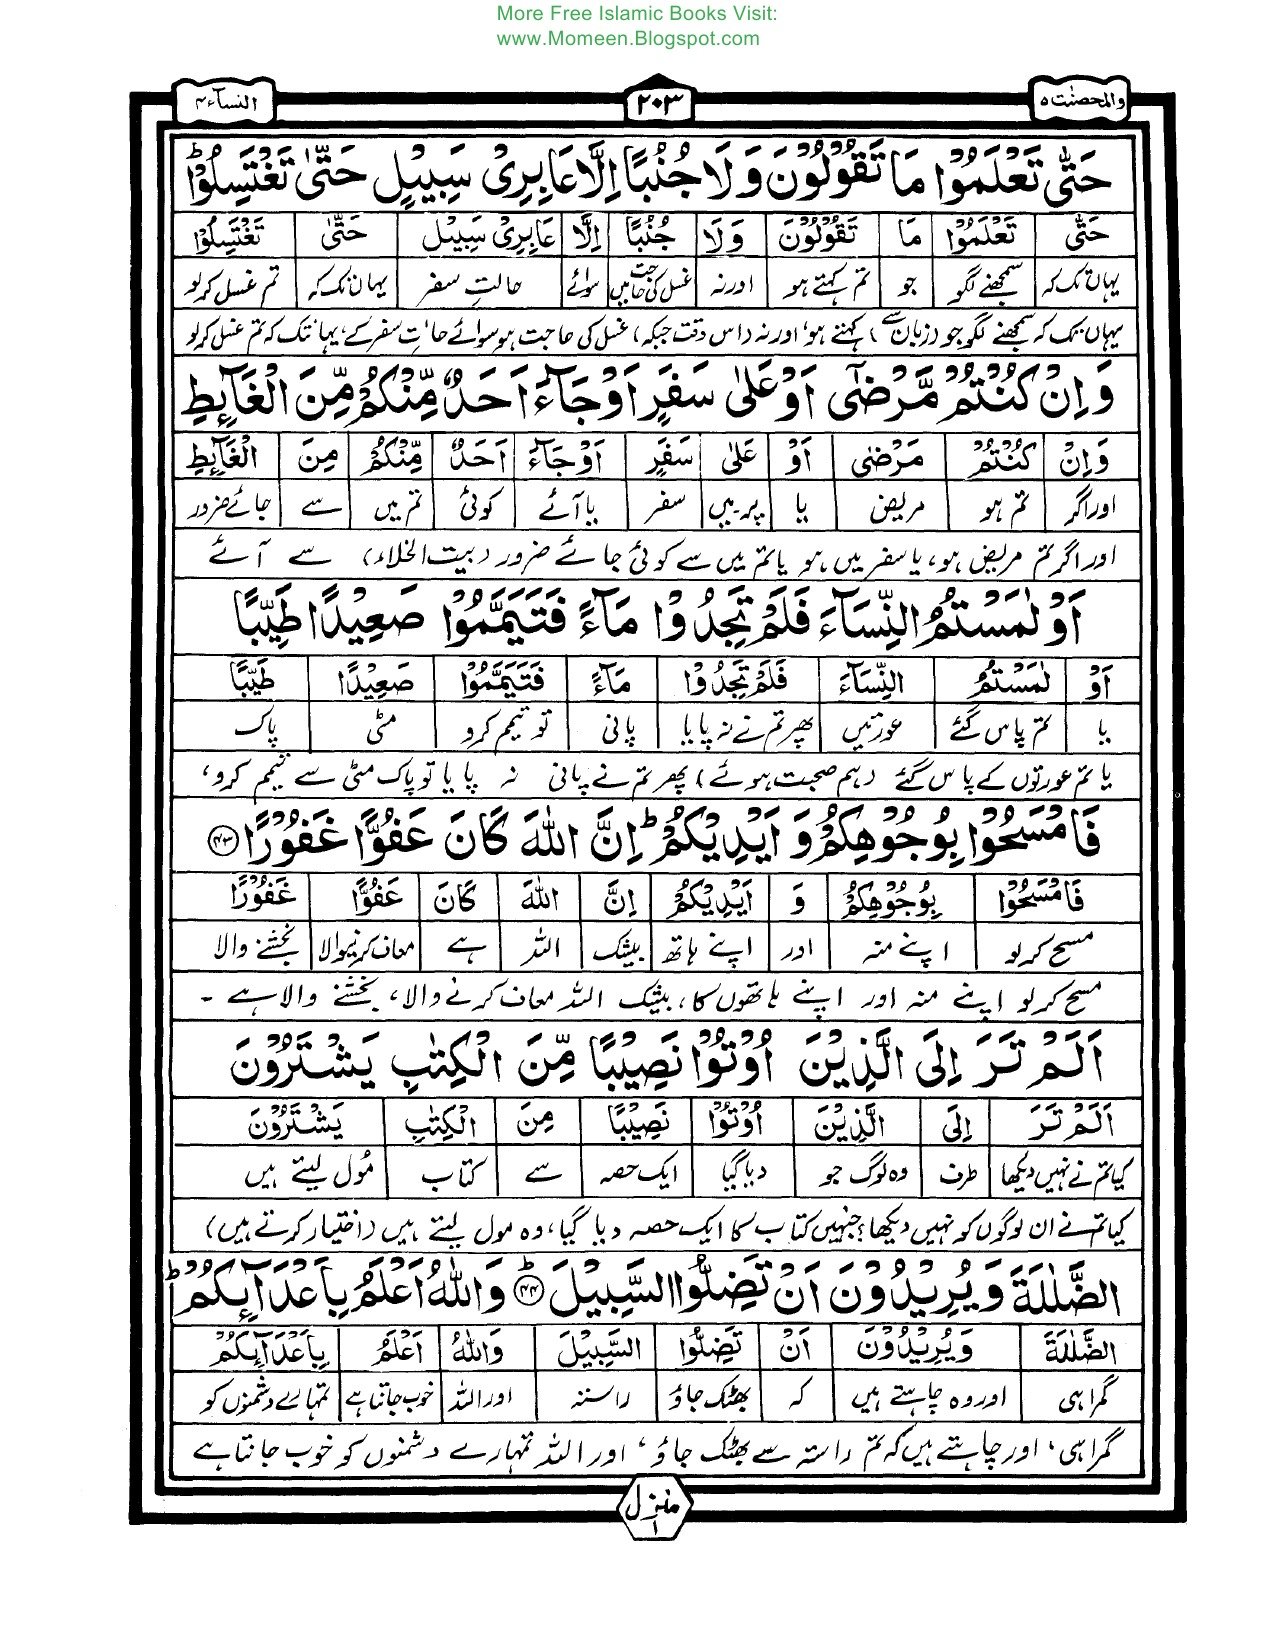 More Free Islamic Books Visit:
www.Momeen.Blogspot.com
والمحصنٰت ۵ ۲۰۳ النسآء ۴
حَتّٰى تَعْلَمُوْا مَا تَقُوْلُوْنَ وَلَا جُنُبًا اِلَّا عَابِرِىْ سَبِيْلٍ حَتّٰى تَغْتَسِلُوْا ؕ
حَتّٰى تَعْلَمُوْا مَا تَقُوْلُوْنَ وَلَا جُنُبًا اِلَّا عَابِرِىْ سَبِيْلٍ حَتّٰى تَغْتَسِلُوْا
یہاں تک کہ سمجھنے لگو جو تم کہتے ہو اور نہ غسل کی حاجت میں سوائے حالتِ سفر یہاں تک کہ تم غسل کر لو
یہاں تک کہ سمجھنے لگو جو (زبان سے) کہتے ہو، اور نہ (اس وقت جبکہ) غسل کی حاجت ہو سوائے حالتِ سفر کے، یہانتک کہ تم غسل کر لو
وَاِنْ كُنْتُمْ مَّرْضٰٓى اَوْ عَلٰى سَفَرٍ اَوْ جَآءَ اَحَدٌ مِّنْكُمْ مِّنَ الْغَآئِطِ
وَاِنْ كُنْتُمْ مَرْضٰى اَوْ عَلٰى سَفَرٍ اَوْ جَآءَ اَحَدٌ مِّنْكُمْ مِنَ الْغَآئِطِ
اور اگر تم ہو مریض یا پر۔میں سفر یا آئے کوئی تم میں سے جائے ضرور
اور اگر تم مریض ہو، یا سفر میں ہو یا تم میں سے کوئی جائے ضرور (بیت الخلاء) سے آئے
اَوْ لٰمَسْتُمُ النِّسَآءَ فَلَمْ تَجِدُوْا مَآءً فَتَيَمَّمُوْا صَعِيْدًا طَيِّبًا
اَوْ لٰمَسْتُمُ النِّسَآءَ فَلَمْ تَجِدُوْا مَآءً فَتَيَمَّمُوْا صَعِيْدًا طَيِّبًا
یا تم پاس گئے عورتیں پھر تم نے نہ پایا پانی تو تیمم کرو مٹی پاک
یا تم عورتوں کے پاس گئے (ہم صحبت ہوئے) پھر تم نے پانی نہ پایا تو پاک مٹی سے تیمم کرو،
فَامْسَحُوْا بِوُجُوْهِكُمْ وَ اَيْدِيْكُمْ ؕ اِنَّ اللّٰهَ كَانَ عَفُوًّا غَفُوْرًا ﴿۴۳﴾
فَامْسَحُوْا بِوُجُوْهِكُمْ وَ اَيْدِيْكُمْ اِنَّ اللّٰهَ كَانَ عَفُوًّا غَفُوْرًا
مسح کر لو اپنے منہ اور اپنے ہاتھ بیشک اللہ ہے معاف کرنیوالا بخشنے والا
مسح کر لو اپنے منہ اور اپنے ہاتھوں کا، بیشک اللہ معاف کرنے والا، بخشنے والا ہے ۔
اَلَمْ تَرَ اِلَى الَّذِيْنَ اُوْتُوْا نَصِيْبًا مِّنَ الْكِتٰبِ يَشْتَرُوْنَ
اَلَمْ تَرَ اِلَى الَّذِيْنَ اُوْتُوْا نَصِيْبًا مِنَ الْكِتٰبِ يَشْتَرُوْنَ
کیا تم نے نہیں دیکھا طرف وہ لوگ جو دیا گیا ایک حصہ سے کتاب مُول لیتے ہیں
کیا تم نے ان لوگوں کو نہیں دیکھا؟ جنہیں کتاب کا ایک حصہ دیا گیا، وہ مول لیتے ہیں (اختیار کرتے ہیں)
الضَّلٰلَةَ وَيُرِيْدُوْنَ اَنْ تَضِلُّوا السَّبِيْلَ ؕ ﴿۴۴﴾ وَاللّٰهُ اَعْلَمُ بِاَعْدَآئِكُمْ ؕ
الضَّلٰلَةَ وَيُرِيْدُوْنَ اَنْ تَضِلُّوا السَّبِيْلَ وَاللّٰهُ اَعْلَمُ بِاَعْدَآئِكُمْ
گمراہی اور وہ چاہتے ہیں کہ بھٹک جاؤ راستہ اور اللہ خوب جانتا ہے تمہارے دشمنوں کو
گمراہی، اور چاہتے ہیں کہ تم راستہ سے بھٹک جاؤ، اور اللہ تمہارے دشمنوں کو خوب جانتا ہے
منزل ۱